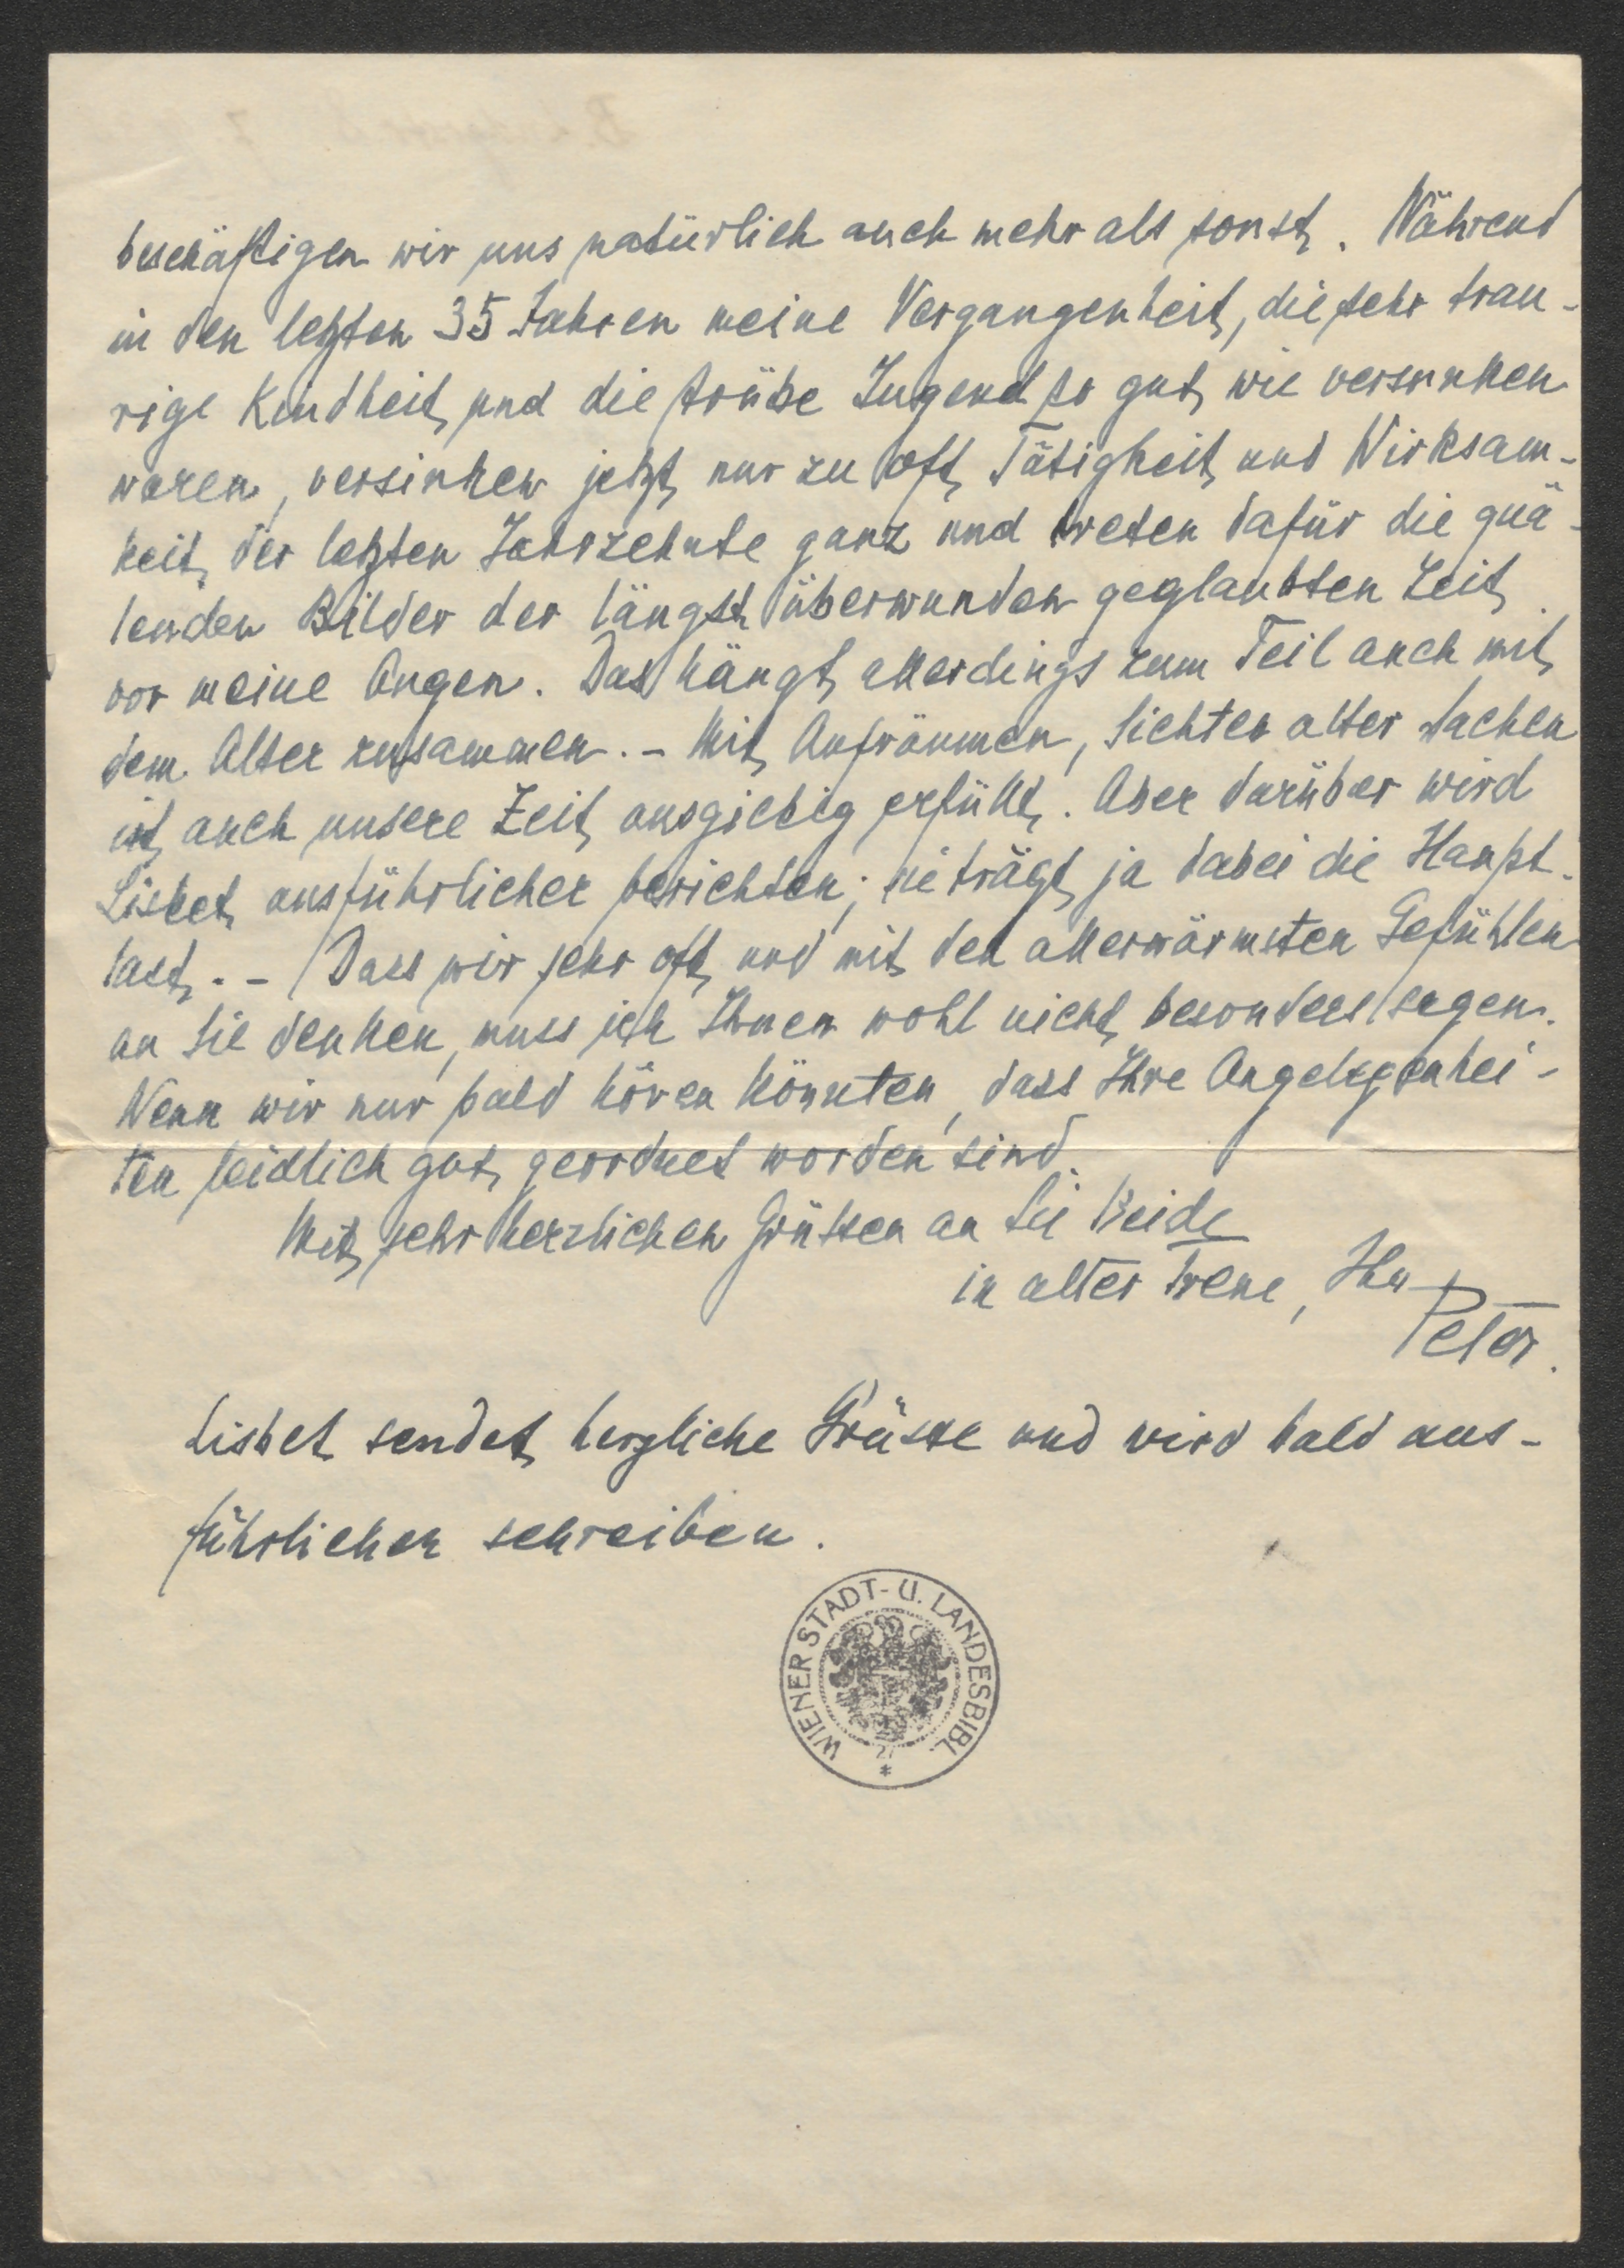 beschäftigen wir uns natürlich auch mehr als sonst. Während
in den letzten 35 Jahren meine Vergangenheit, die sehr trau-
rige Kindheit und die trübe Jugend so gut wie versunken
waren, versinken jetzt nur zu oft Tätigkeit und Wirksam-
keit der letzten Jahrzehnte ganz und treten dafür die quä-
lenden Bilder der längst überwunden geglaubten Zeit
vor meine Augen. Das hängt allerdings zum Teil auch mit
dem Alter zusammen. – Mit Aufräumen, Sichten alter Sachen
ist auch unsere Zeit ausgiebig erfüllt. Aber darüber wird
Lisbet ausführlicher berichten; sie trägt ja dabei die Haupt-
last. – Dass wir sehr oft und mit den allerwärmsten Gefühlen
an Sie denken, muss ich Ihnen wohl nicht besonders sagen.
Wenn wir nur bald hören könnten, dass Ihre Angelegenhei-
ten leidlich gut geordnet worden sind.
Mit sehr herzlichen Grüssen an Sie Beide
in alter Treue, Ihr
Peter.
Lisbet sendet herzliche Grüsse und wird bald aus-
führlicher schreiben.
WIENER STADT- U. LANDESBIBL.